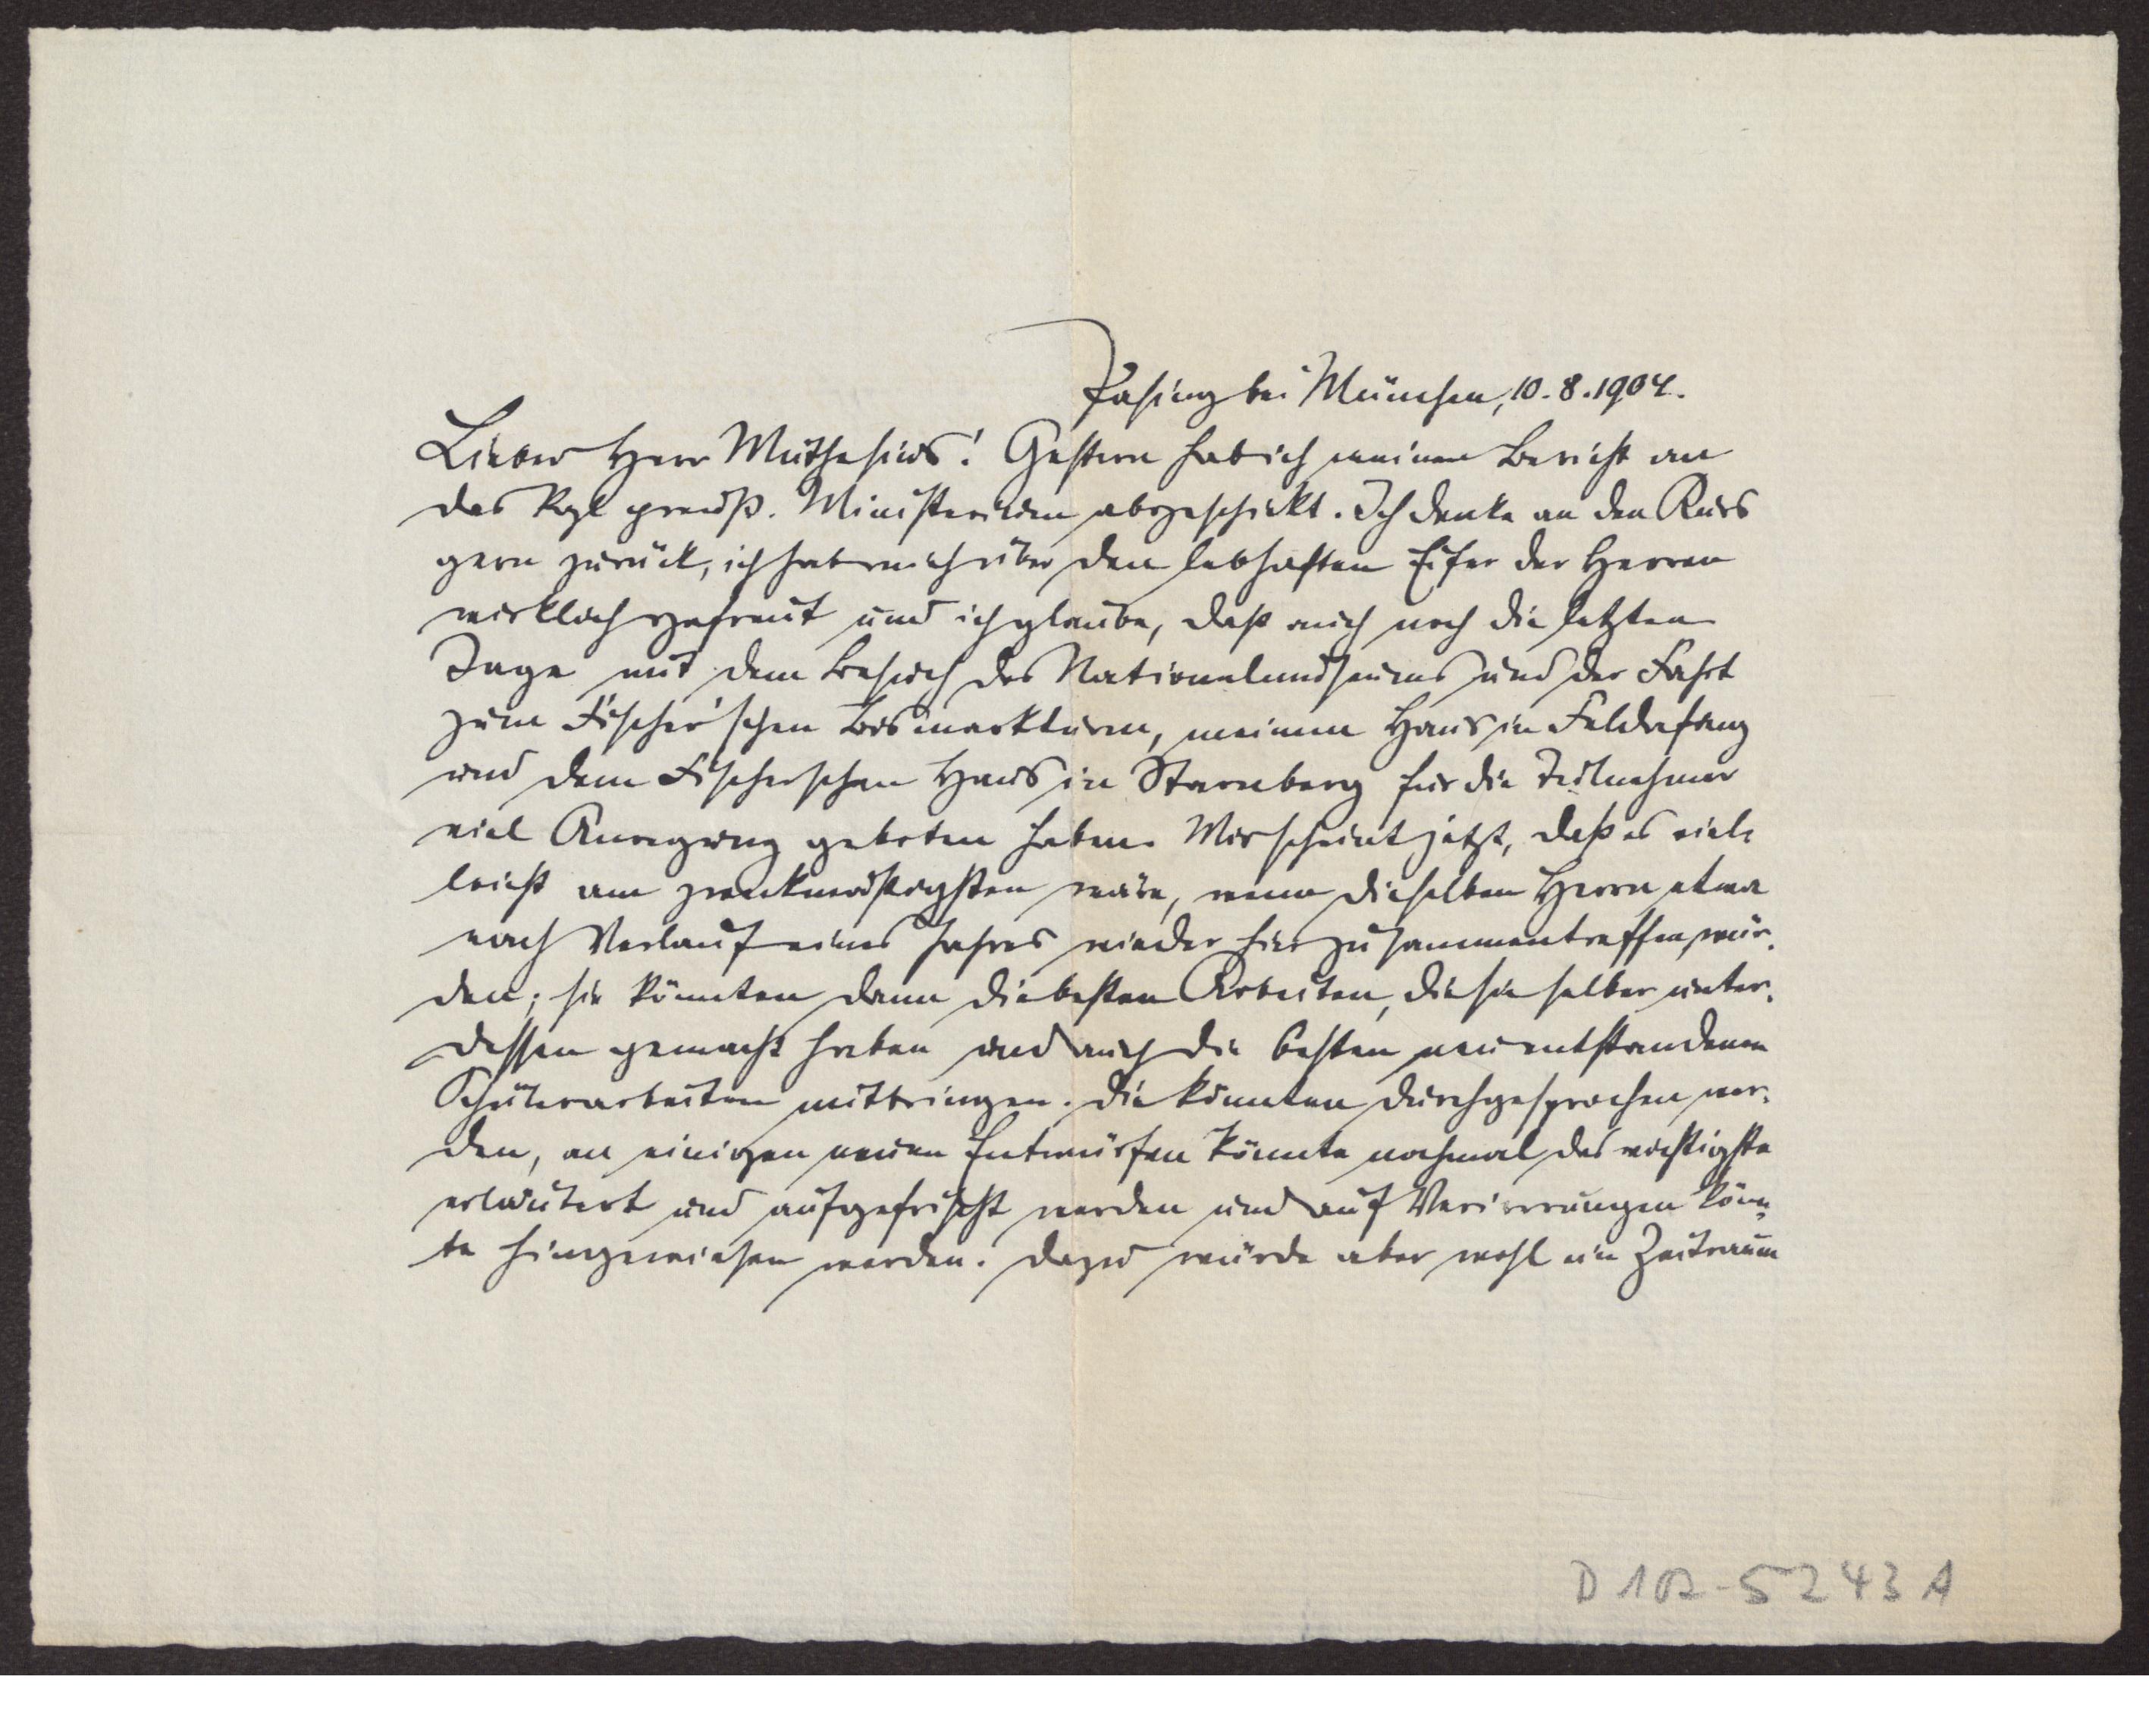 Pasing bei München, 10.8.1904.
Lieber Herr Muthesius! Gestern hab ich meinen Bericht an
das Kgl preuß. Ministerium abgeschickt. Ich denke an den Kurs
gern zurück, ich hab mich über den lebhaften Eifer der Herren
wirklich gefreut und ich glaube, daß auch noch die letzten
Tage mit dem Besuch des Nationalmuseums und der Fahrt
zum Fischer'schen Bismarkturm, meinem Haus in Feldafing
und dem Fischerschen Haus in Starnberg für die Teilnehmer
viel Anregung geboten haben. Mir scheint jetzt, daß es viel-
leicht am zweckmäßigsten wäre, wenn dieselben Herrn etwa
nach Verlauf eines Jahres wieder hier zusammentreffen wür-
den; sie könnten dann die besten Arbeiten, die sie selber unter-
dessen gemacht haben und auch die besten neuentstandenen
Schülerarbeiten mitbringen. Die könnten durchgesprochen wer-
den, an einigen neuen Entwürfen könnte nochmal das wichtigste
erläutert und aufgefrischt werden und auf Verirrungen könn-
te hingewiesen werden. Dazu würde aber wohl ein Zeitraum
D 102-5243 A